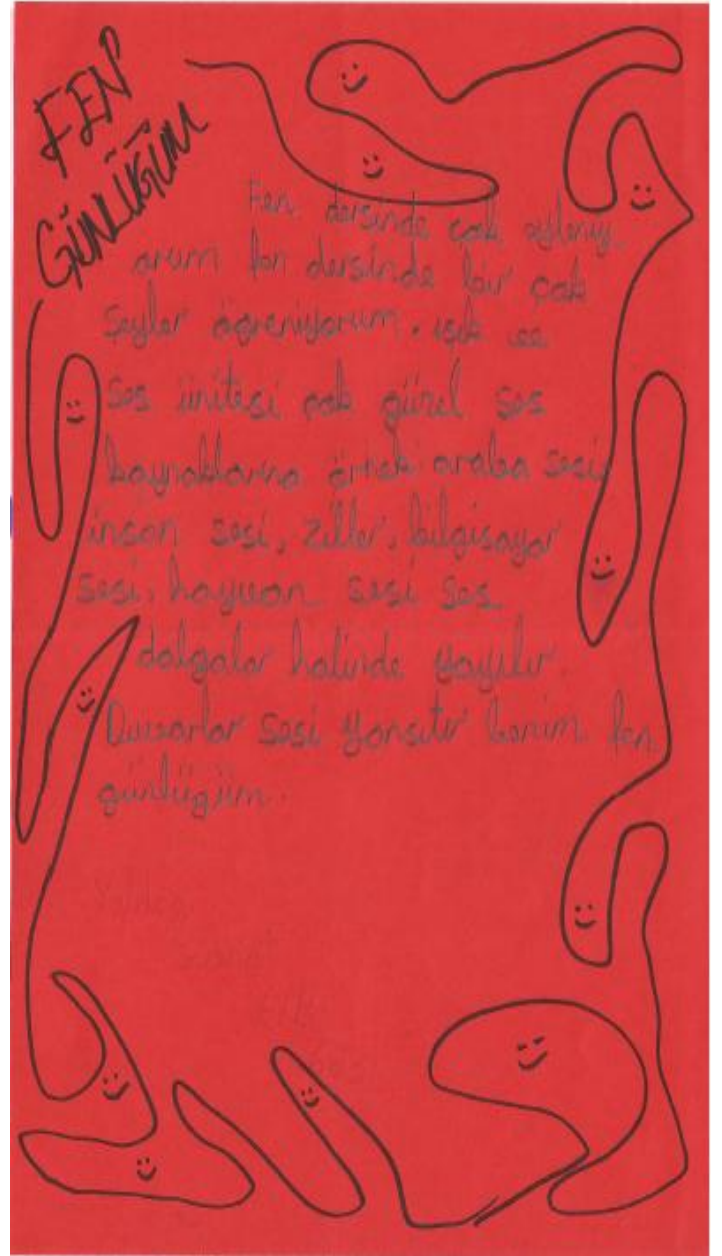 FEN
GÜNLÜĞÜM
Fen dersinde çok eyleniy
orum fen dersinde bir çok
şeyler öğreniyorum. ışık ve
Ses ünitesi çok güzel ses
kaynaklarına örnek araba sesi
insan sesi, ziller, bilgisayar
sesi, hayvan sesi ses
dalgalar halinde yayılır.
Duvarlar sesi yansıtır benim fen
günlüğüm.